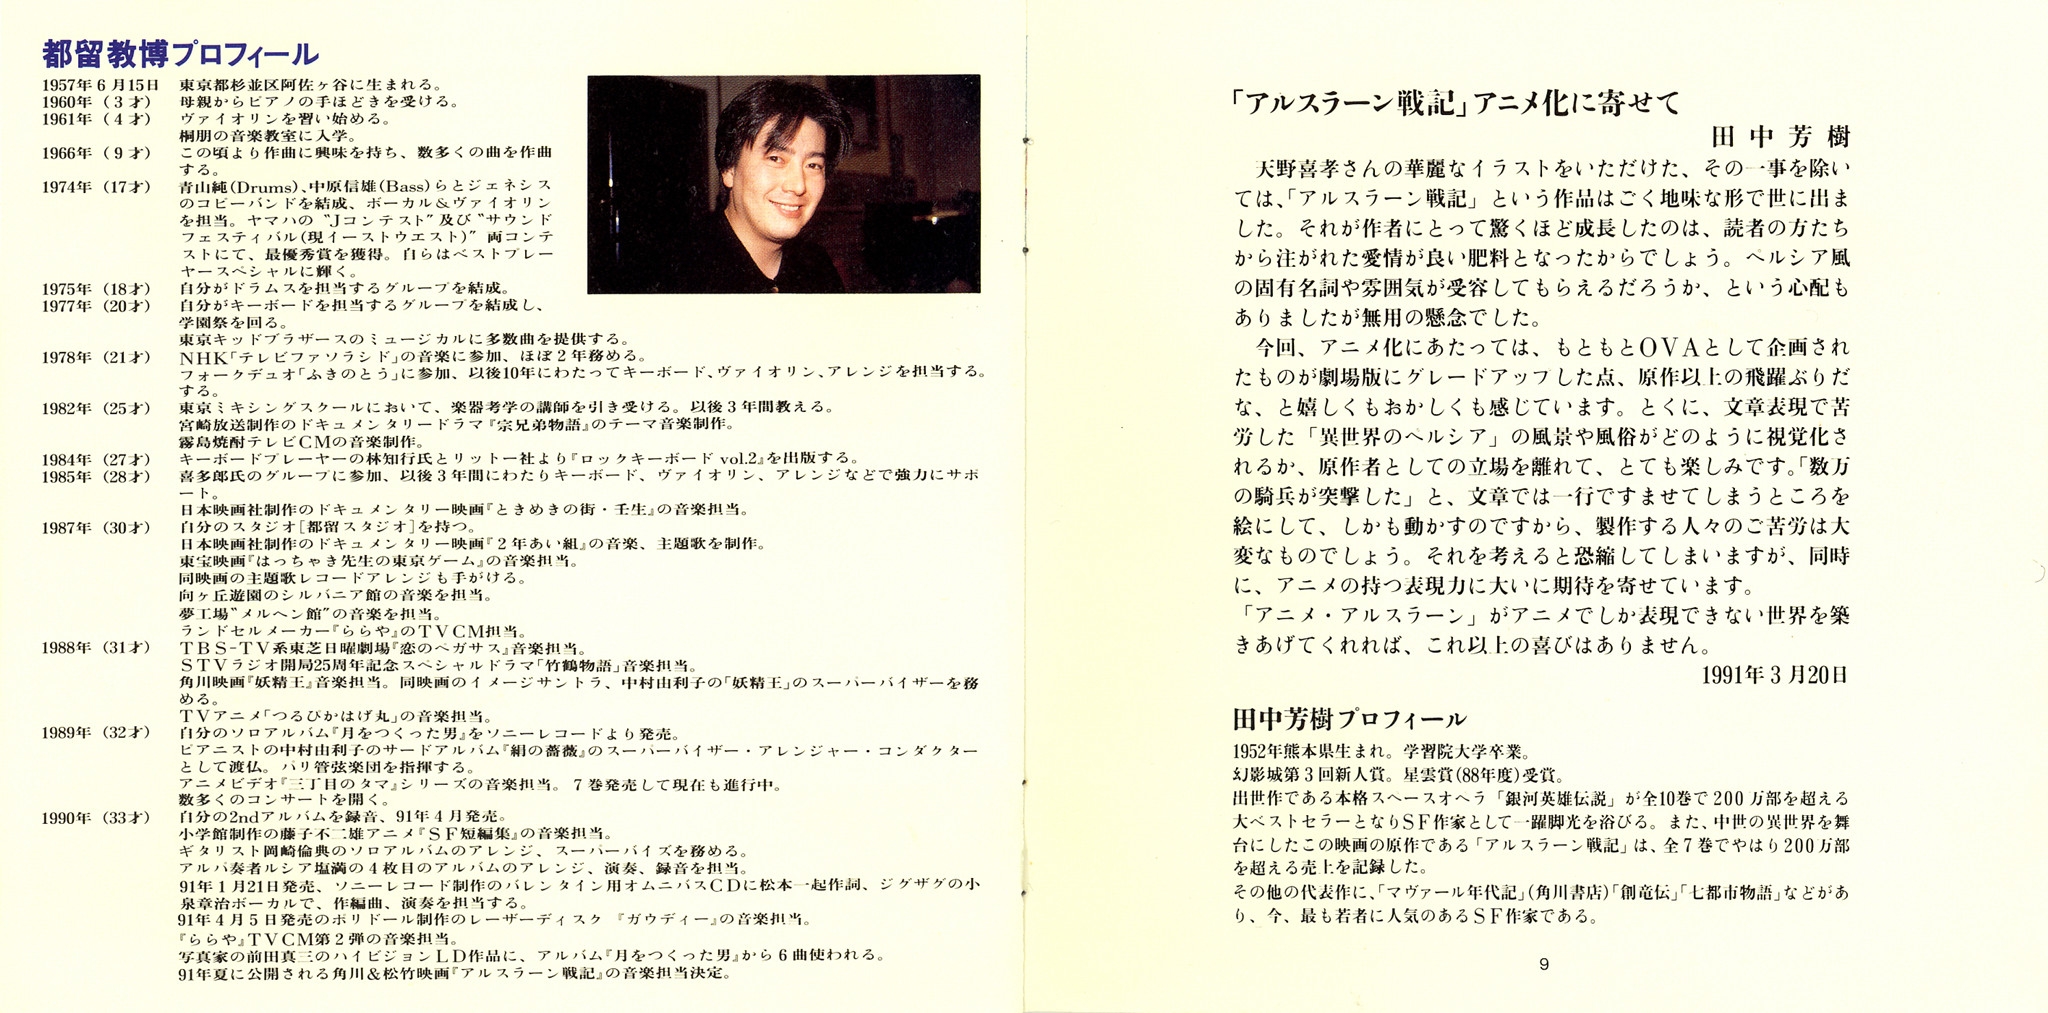 都留教博プロフィール
1957年6月15日 東京都杉並区阿佐ヶ谷に生まれる。
1960年(3才) 母親からピアノの手ほどきを受ける。
1961年(4才) ヴァイオリンを習い始める。
桐朋の音楽教室に入学。
1966年(9才) この頃より作曲に興味を持ち、数多くの曲を作曲
する。
1974年(17才) 青山純(Drums)、中原信雄(Bass)らとジェネシス
のコピーバンドを結成、ボーカル&ヴァイオリン
を担当。ヤマハの〝Jコンテスト〞及び〝サウンド
フェスティバル(現イーストウエスト)〞両コンテ
ストにて、最優秀賞を獲得。自らはベストプレー
ヤースペシャルに輝く。
1975年(18才) 自分がドラムスを担当するグループを結成。
1977年(20才) 自分がキーボードを担当するグループを結成し、
学園祭を回る。
東京キッドブラザースのミュージカルに多数曲を提供する。
1978年(21才) NHK「テレビファソラシド」の音楽に参加、ほぼ2年務める。
フォークデュオ「ふきのとう」に参加、以後10年にわたってキーボード、ヴァイオリン、アレンジを担当する。
する。
1982年(25才) 東京ミキシングスクールにおいて、楽器考学の講師を引き受ける。以後3年間教える。
宮崎放送制作のドキュメンタリードラマ『宗兄弟物語』のテーマ音楽制作。
霧島焼酎テレビCMの音楽制作。
1984年(27才) キーボードプレーヤーの林知行氏とリットー社より『ロックキーボード vol.2』を出版する。
1985年(28才) 喜多郎氏のグループに参加、以後3年間にわたりキーボード、ヴァイオリン、アレンジなどで強力にサポ
ート。
日本映画社制作のドキュメンタリー映画『ときめきの街・壬生』の音楽担当。
1987年(30才) 自分のスタジオ[都留スタジオ]を持つ。
日本映画社制作のドキュメンタリー映画『2年あい組』の音楽、主題歌を制作。
東宝映画『はっちゃき先生の東京ゲーム』の音楽担当。
同映画の主題歌レコードアレンジも手がける。
向ヶ丘遊園のシルバニア館の音楽を担当。
夢工場〝メルヘン館〞の音楽を担当。
ランドセルメーカー『ららや』のTVCM担当。
1988年(31才) TBS-TV系東芝日曜劇場『恋のペガサス』音楽担当。
STVラジオ開局25周年記念スペシャルドラマ「竹鶴物語」音楽担当。
角川映画『妖精王』音楽担当。同映画のイメージサントラ、中村由利子の「妖精王」のスーパーバイザーを務
める。
TVアニメ「つるぴかはげ丸」の音楽担当。
1989年(32才) 自分のソロアルバム『月をつくった男』をソニーレコードより発売。
ピアニストの中村由利子のサードアルバム『絹の薔薇』のスーパーバイザー・アレンジャー・コンダクター
として渡仏。パリ管弦楽団を指揮する。
アニメビデオ『三丁目のタマ』シリーズの音楽担当。7巻発売して現在も進行中。
数多くのコンサートを開く。
1990年(33才) 自分の2ndアルバムを録音、91年4月発売。
小学館制作の藤子不二雄アニメ『SF短編集』の音楽担当。
ギタリスト岡崎倫典のソロアルバムのアレンジ、スーパーバイズを務める。
アルパ奏者ルシア塩満の4枚目のアルバムのアレンジ、演奏、録音を担当。
91年1月21日発売、ソニーレコード制作のバレンタイン用オムニバスCDに松本一起作詞、ジグザグの小
泉章治ボーカルで、作編曲、演奏を担当する。
91年4月5日発売のポリドール制作のレーザーディスク『ガウディー』の音楽担当。
『ららや』TVCM第2弾の音楽担当。
写真家の前田真三のハイビジョンLD作品に、アルバム『月をつくった男』から6曲使われる。
91年夏に公開される角川&松竹映画『アルスラーン戦記』の音楽担当決定。
「アルスラーン戦記」アニメ化に寄せて
田中芳樹
天野喜孝さんの華麗なイラストをいただけた、その一事を除い
ては、「アルスラーン戦記」という作品はごく地味な形で世に出ま
した。それが作者にとって驚くほど成長したのは、読者の方たち
から注がれた愛情が良い肥料となったからでしょう。ペルシア風
の固有名詞や雰囲気が受容してもらえるだろうか、という心配も
ありましたが無用の懸念でした。
今回、アニメ化にあたっては、もともとOVAとして企画され
たものが劇場版にグレードアップした点、原作以上の飛躍ぶりだ
な、と嬉しくもおかしくも感じています。とくに、文章表現で苦
労した「異世界のペルシア」の風景や風俗がどのように視覚化さ
れるか、原作者としての立場を離れて、とても楽しみです。「数万
の騎兵が突撃した」と、文章では一行ですませてしまうところを
絵にして、しかも動かすのですから、製作する人々のご苦労は大
変なものでしょう。それを考えると恐縮してしまいますが、同時
に、アニメの持つ表現力に大いに期待を寄せています。
「アニメ・アルスラーン」がアニメでしか表現できない世界を築
きあげてくれれば、これ以上の喜びはありません。
1991年3月20日
田中芳樹プロフィール
1952年熊本県生まれ。学習院大学卒業。
幻影城第3回新人賞。星雲賞(88年度)受賞。
出世作である本格スペースオペラ「銀河英雄伝説」が全10巻で200万部を超える
大ベストセラーとなりSF作家として一躍脚光を浴びる。また、中世の異世界を舞
台にしたこの映画の原作である「アルスラーン戦記」は、全7巻でやはり200万部
を超える売上を記録した。
その他の代表作に、「マヴァール年代記」(角川書店)「創竜伝」「七都市物語」などがあ
り、今、最も若者に人気のあるSF作家である。
9